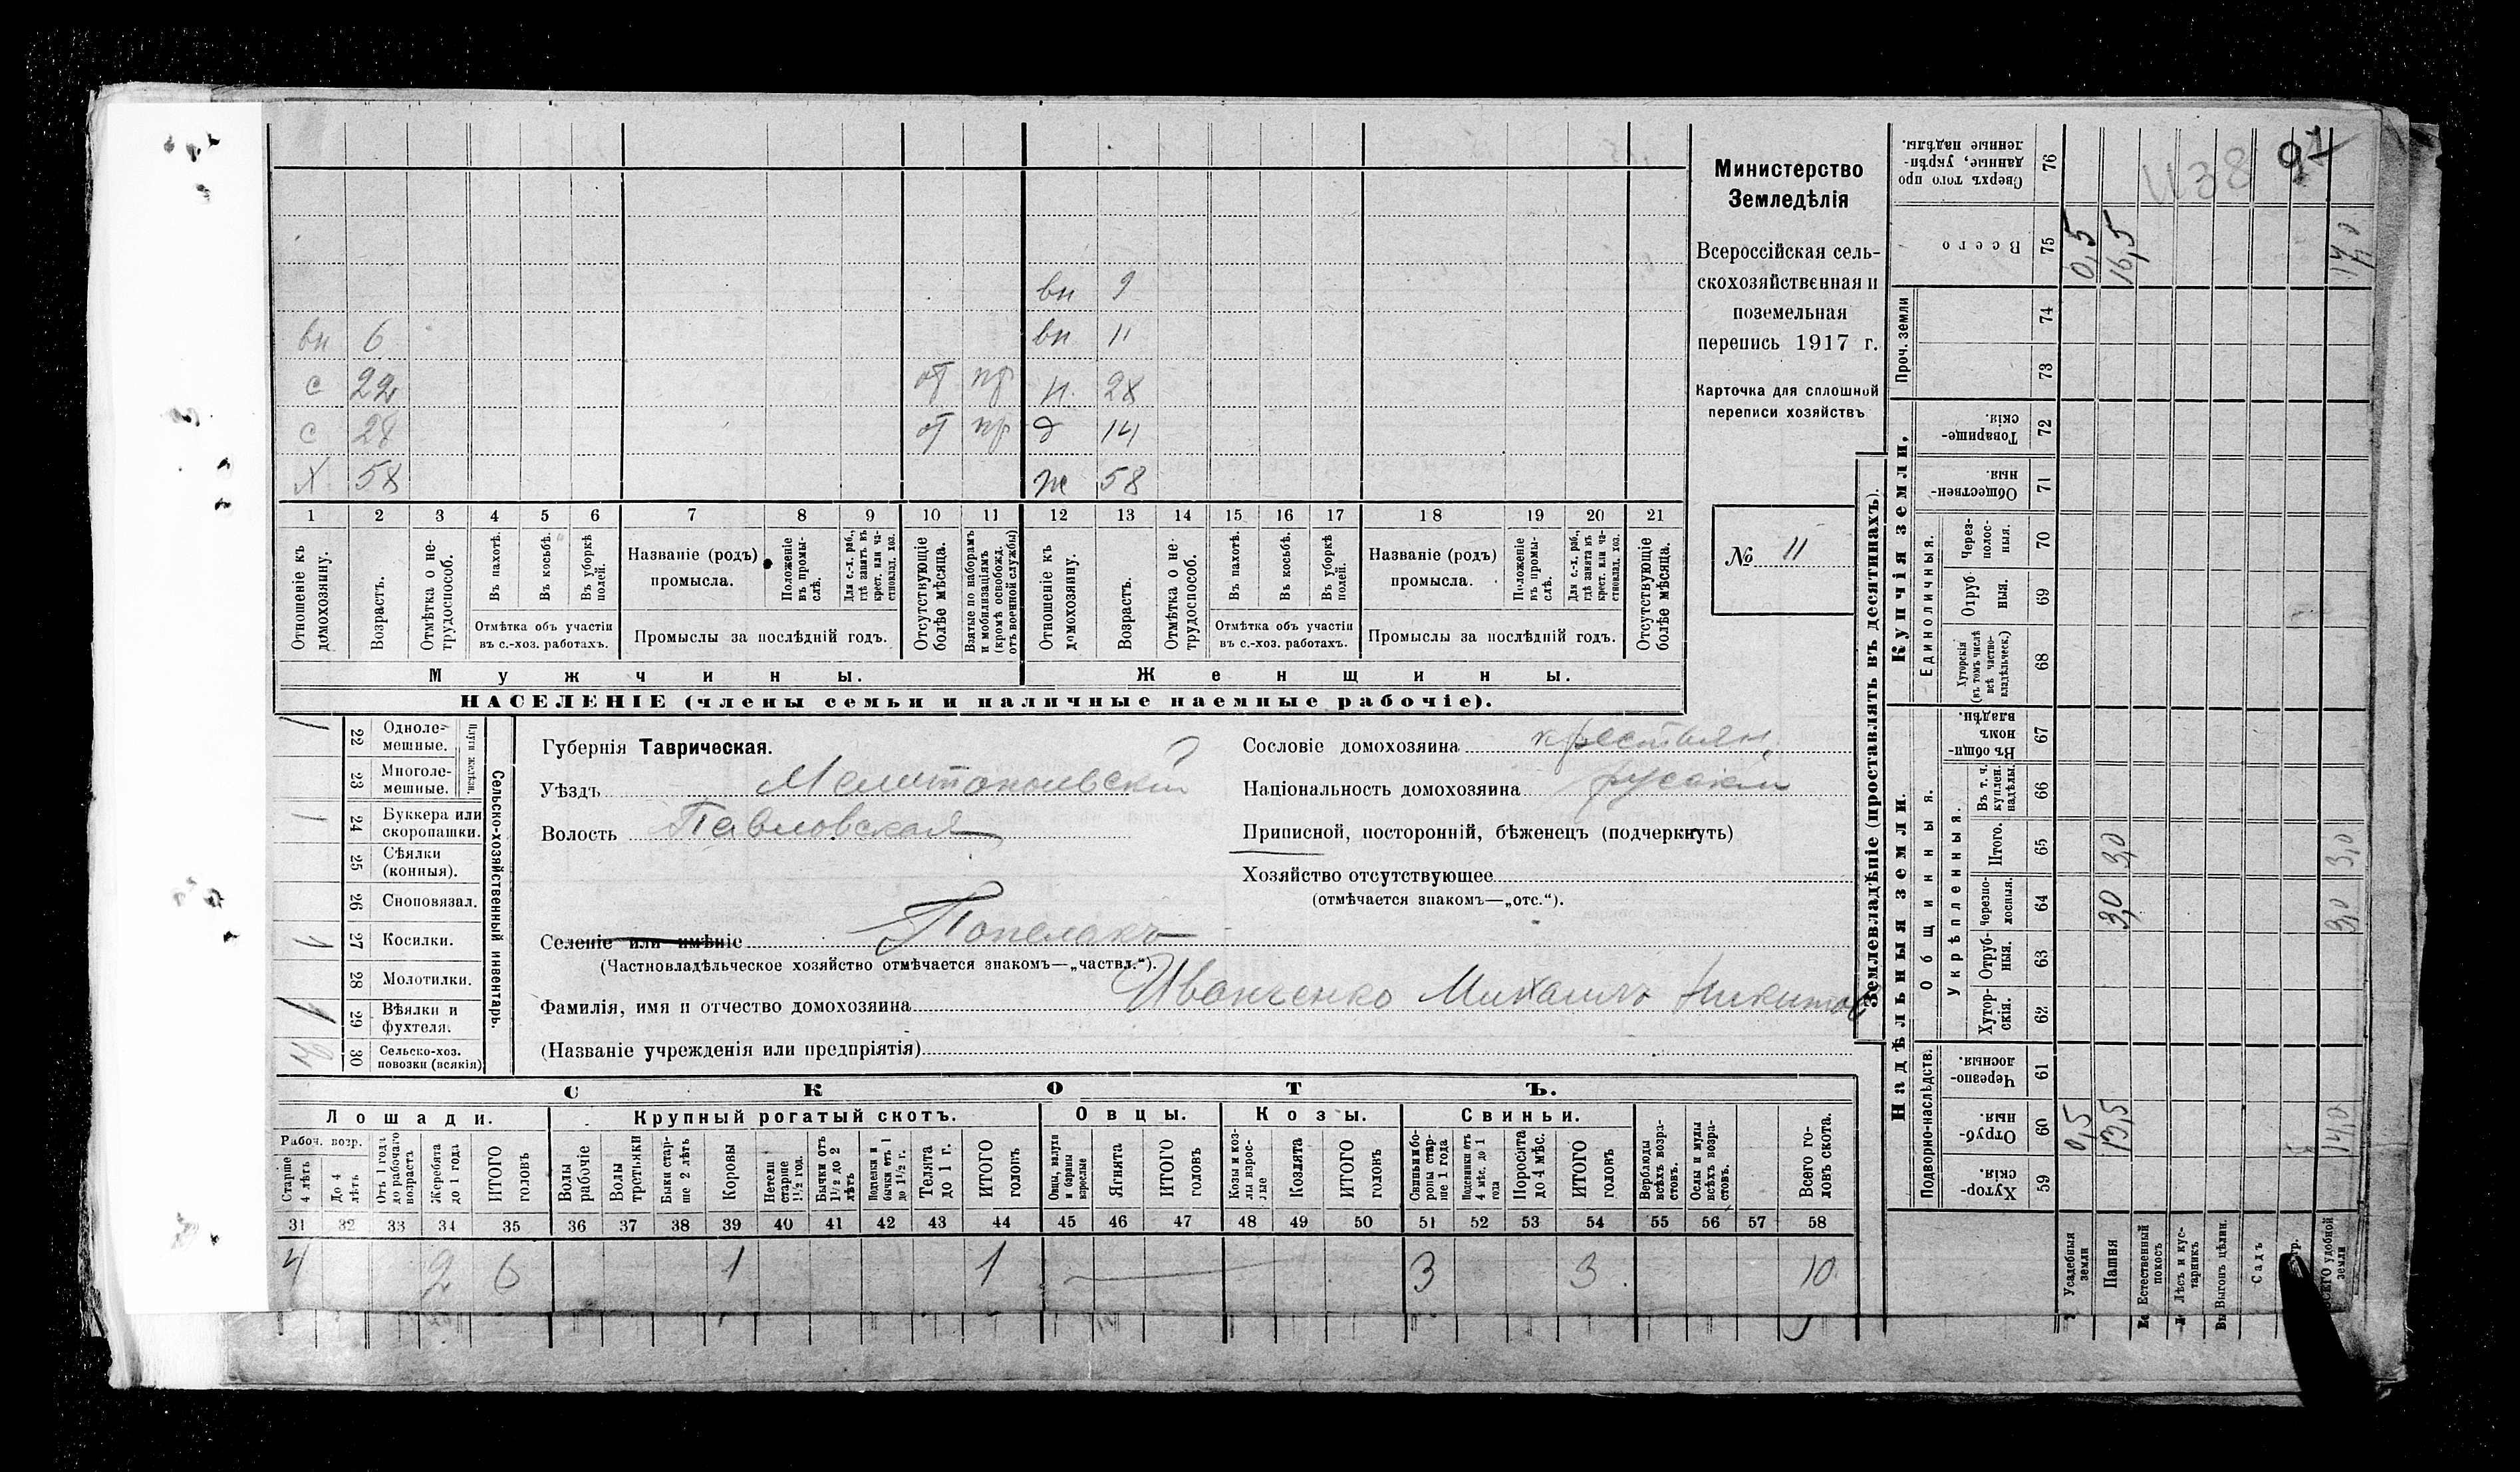 вн 9
вн 6 вн 11
с 22 от пр н. 28
с 28 от пр д 14
х 58 ж 58
1 2 3 4 5 6 7 8 9 10 11 12 13 14 15 16 17 18 19 20 21
Отношеніе къ домохозяину.
Возрастъ.
Отмѣтка о нетрудоспособ.
Въ пахотѣ.
Въ косьбѣ.
Въ уборкѣ полей.
Отмѣтка объ участіи въ с.-хоз. работахъ.
Названіе (родъ) промысла.
Положеніе въ промыслѣ.
Для с.-х. раб., гдѣ занятъ въ крест. или частновлад. хоз.
Промыслы за послѣдній годъ.
Отсутствующіе болѣе мѣсяца.
Взятые по наборамъ и мобилизаціямъ (кромѣ освобожд. отъ военной службы)
Отношеніе къ домохозяину.
Возрастъ.
Отмѣтка о нетрудоспособ.
Въ пахотѣ.
Въ косьбѣ.
Въ уборкѣ полей.
Отмѣтка объ участіи въ с.-хоз. работахъ.
Названіе (родъ) промысла.
Положеніе въ промыслѣ.
Для с.-х. раб., гдѣ занята въ крест. или частновлад. хоз.
Промыслы за послѣдній годъ.
Отсутствующіе болѣе мѣсяца.
Мужчины. Женщины.
НАСЕЛЕНІЕ (члены семьи и наличные наемные рабочіе).
Министерство
Земледѣлія
Всероссійская сель-
скохозяйственная и
поземельная
перепись 1917 г.
Карточка для сплошной
переписи хозяйствъ
№ 11
1 22 Одноле-мешные.
23 Многоле-мешные.
Плуги желѣзн.
1 24 Буккера или скоропашки.
25 Сѣялки (конныя).
26 Сноповязал.
1 27 Косилки.
28 Молотилки.
1 29 Вѣялки и фухтеля.
30 Сельско-хоз. повозки (всякія)
Сельско-хозяйственный инвентарь.
Губернія Таврическая.
Уѣздъ Мелитопольскій
Волость Павловская
Селеніе или имѣніе
(Частновладѣльческое хозяйство отмѣчается знакомъ—„частвл.“).
Фамилія, имя и отчество домохозяина Иванченко Михаилъ Никитов
(Названіе учрежденія или предпріятія)
Сословіе домохозяина крестьян.
Національность домохозяина русскій
Приписной, посторонній, бѣженецъ (подчеркнуть)
Хозяйство отсутствующее
(отмѣчается знакомъ—„отс.“).
СКОТЪ.
Лошади. Крупный рогатый скотъ. Овцы. Козы. Свиньи.
Рабоч. возр.
Старше 4 лѣтъ
До 4 лѣтъ
Отъ 1 года до рабочаго возраста
Жеребята до 1 года
ИТОГО головъ
Волы рабочіе
Волы третьяки
Быки старше 2 лѣтъ
Коровы
Нетели старше 1½ год.
Бычки отъ 1½ до 2 лѣтъ
Подтелки и бычки отъ 1 до 1½ г.
Телята до 1 г.
ИТОГО головъ
Овцы, валухи и бараны взрослые
Ягнята
ИТОГО головъ
Козы и козлы взрослые
Козлята
ИТОГО головъ
Свиньи боровы старше 1 года
Подсвинки отъ 4 мѣс. до 1 года
Поросята до 4 мѣс.
ИТОГО головъ
Верблюды всѣхъ возрастовъ.
Ослы и мулы всѣхъ возрастовъ.
Всего головъ скота.
31 32 33 34 35 36 37 38 39 40 41 42 43 44 45 46 47 48 49 50 51 52 53 54 55 56 57 58
4 2 6 1 1 3 3 10
Землевладѣніе (проставлять въ десятинахъ).
Надѣльныя земли. Купчія земли. Проч. земли
Подворно-наслѣдств. Общинныя. Единоличныя.
Укрѣпленныя.
Хуторскія. 59
Отрубныя. 60 0,5 13,5 14,0
Черезполосныя. 61
Хуторскія. 62
Отрубныя. 63
Черезполосныя. 64 3,0 3,0
Итого. 65 3,0 3,0
Въ т. ч. куплен. надѣлы. 66
Въ общинномъ владѣн. 67
Хуторскія (въ томъ числѣ всѣ частновладѣльческ.) 68
Отрубныя. 69
Черезполосныя. 70
Общественныя. 71
Товарищескія. 72
73
74
Всего 75 0,5 16,5 17,0
Сверхъ того проданные, укрѣпленные надѣлы. 76
1138
Усадебныя земли
Пашня
Естественный покосъ
Лѣсъ и кустарникъ
Выгонъ цѣлин.
Садъ
удобной земли